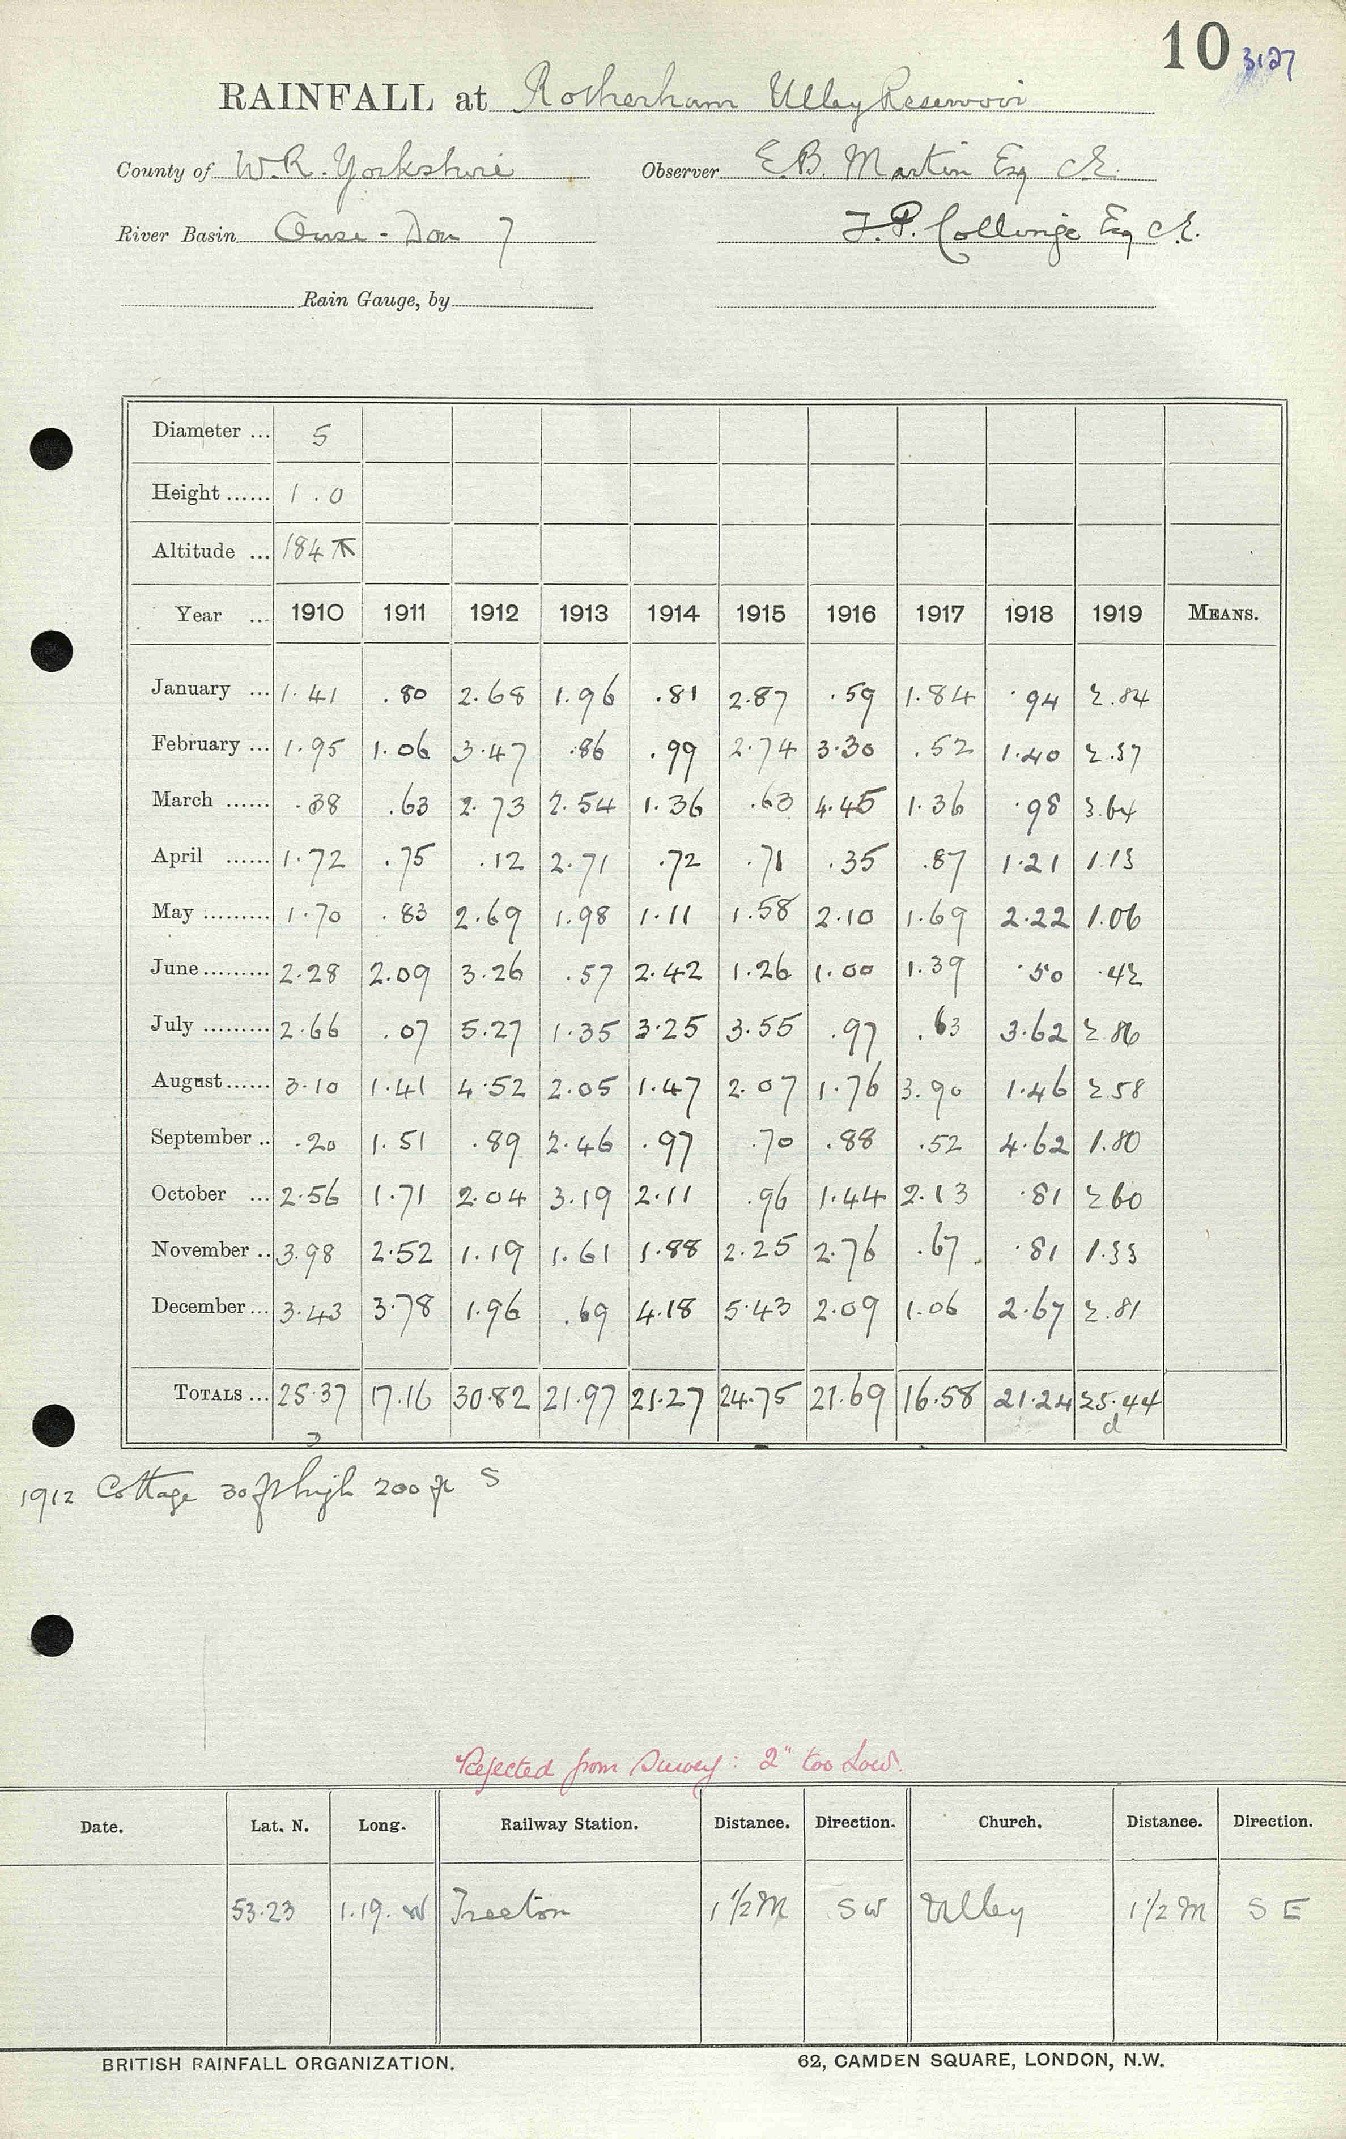 10 3127
RAINFALL at Rotherham Ulley Reservoir
County of W.R. Yorkshire Observer E.B. Martin Esq C.E.
River Basin Ouse - Don 7 J.P. Collinge Esq C.E.
Rain Gauge, by
Diameter ... 5
Height ...... 1.0
Altitude ... 184
Year ... 1910 1911 1912 1913 1914 1915 1916 1917 1918 1919 MEANS.
January ... 1.41 .80 2.68 1.96 .81 2.87 .59 1.84 .94 2.84
February ... 1.95 1.06 3.47 .86 .99 2.74 3.30 .52 1.40 2.37
March ...... .38 .63 2.73 2.54 1.36 .63 4.45 1.36 .98 3.64
April ...... 1.72 .75 .12 2.71 .72 .71 .35 .87 1.21 1.13
May ......... 1.70 .83 2.69 1.98 1.11 1.58 2.10 1.69 2.22 1.06
June ......... 2.28 2.09 3.26 .57 2.42 1.26 1.00 1.39 .50 .42
July ......... 2.66 .07 5.27 1.35 3.25 3.55 .97 .63 3.62 2.86
August ...... 3.10 1.41 4.52 2.05 1.47 2.07 1.76 3.90 1.46 2.58
September .. .20 1.51 .89 2.46 .97 .70 .88 .52 4.62 1.80
October ... 2.56 1.71 2.04 3.19 2.11 .96 1.44 2.13 .81 2.60
November .. 3.98 2.52 1.19 1.61 1.88 2.25 2.76 .67 .81 1.33
December ... 3.43 3.78 1.96 .69 4.18 5.43 2.09 1.06 2.67 2.81
TOTALS ... 25.37 17.16 30.82 21.97 21.27 24.75 21.69 16.58 21.24 25.44
d
1912 Cottage 30 ft high 200 ft S
Rejected from Survey: 2" too Low.
Date. Lat. N. Long. Railway Station. Distance. Direction. Church. Distance. Direction.
53.23 1.19. W Treeton 1 1/2 M SW Ulley 1 1/2 M S E
BRITISH RAINFALL ORGANIZATION. 62, CAMDEN SQUARE, LONDON, N.W.